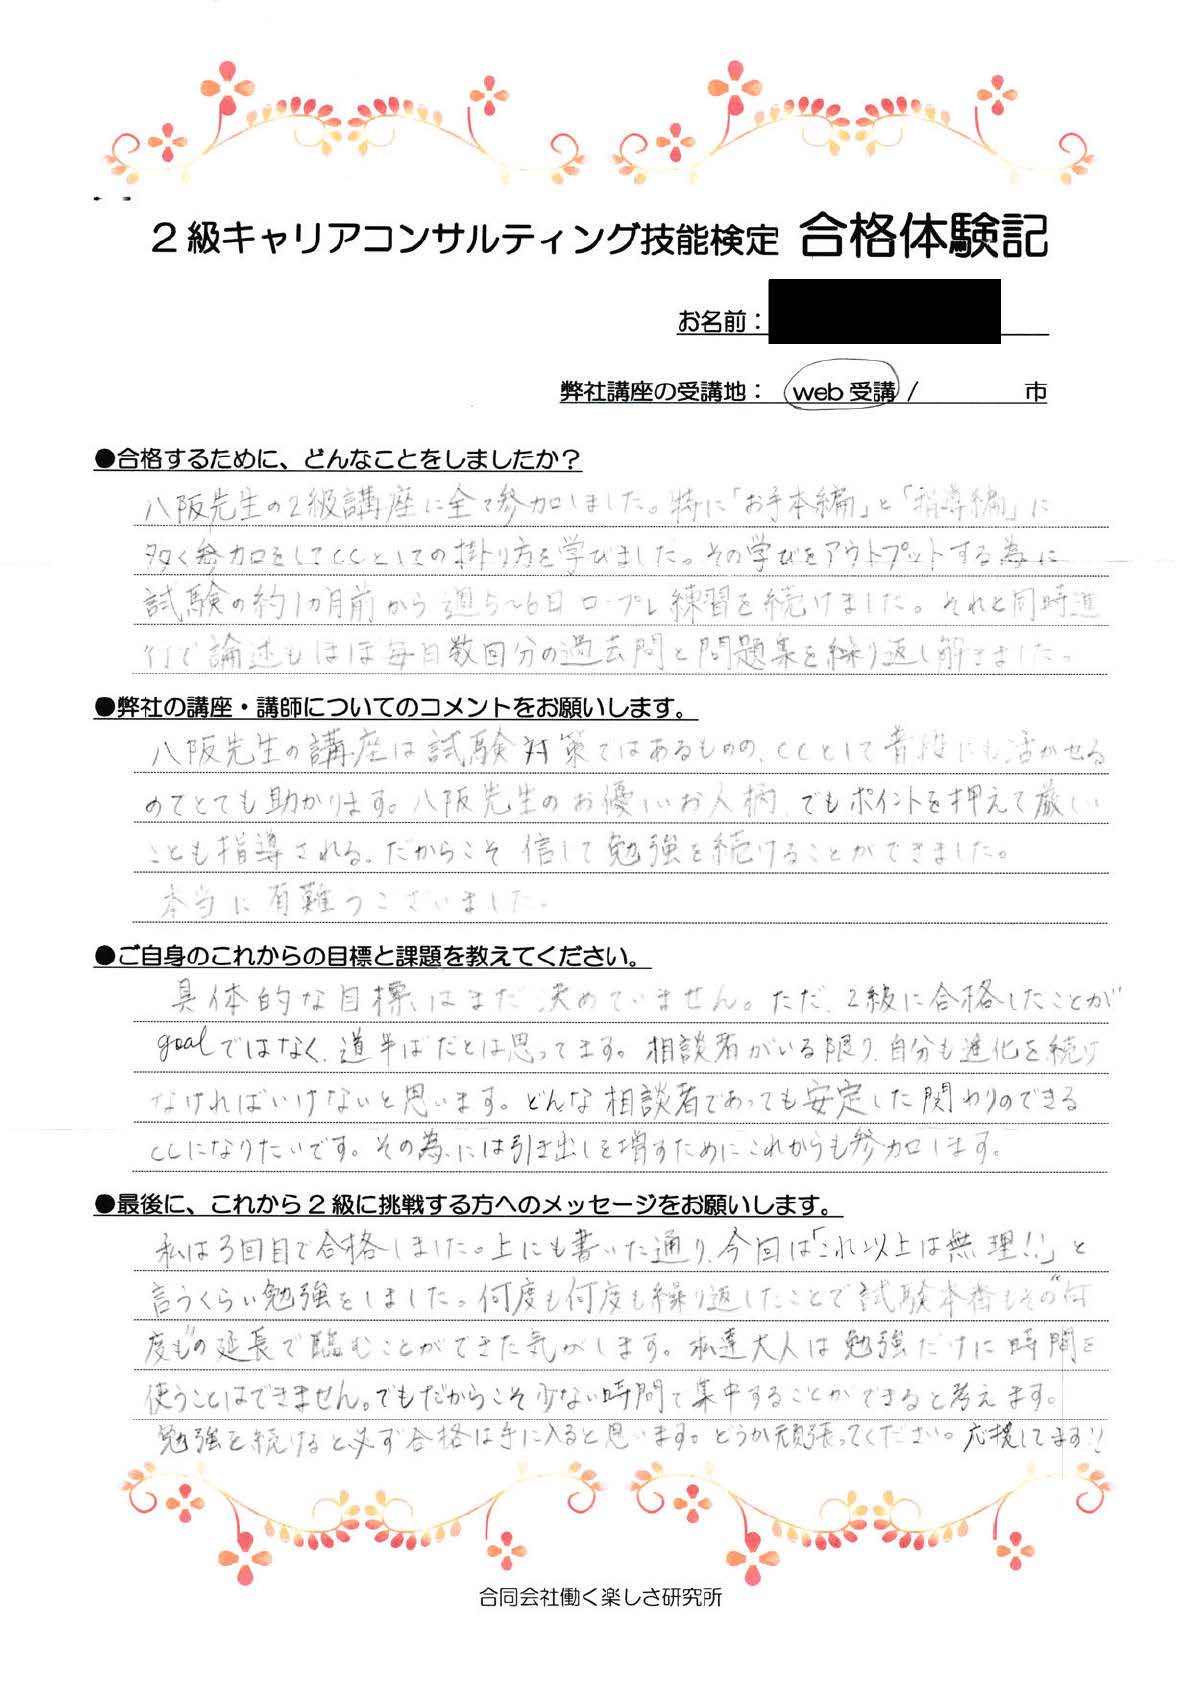 2級キャリアコンサルティング技能検定 合格体験記
お名前：
弊社講座の受講地： web受講 / 市
●合格するために、どんなことをしましたか？
八阪先生の2級講座に全て参加しました。特に「お手本編」と「指導編」に
多く参加をしてCCとしての掛り方を学びました。その学びをアウトプットする為に
試験の約1カ月前から週5〜6日ロープレ練習を続けました。それと同時進
行で論述もほぼ毎日数回分の過去問と問題集を繰り返し解きました。
●弊社の講座・講師についてのコメントをお願いします。
八阪先生の講座は試験対策ではあるものの、CCとして普段にも活かせる
のでとても助かります。八阪先生のお優しいお人柄、でもポイントを押えて厳しい
ことも指導される。だからこそ信じて勉強を続けることができました。
本当に有難うございました。
●ご自身のこれからの目標と課題を教えてください。
具体的な目標はまだ決めていません。ただ、2級に合格したことが
goalではなく、道半ばだとは思ってます。相談者がいる限り、自分も進化を続け
なければいけないと思います。どんな相談者であっても安定した関わりのできる
CCになりたいです。その為には引き出しを増すためにこれからも参加します。
●最後に、これから2級に挑戦する方へのメッセージをお願いします。
私は3回目で合格しました。上にも書いた通り、今回は「これ以上は無理!!」と
言うくらい勉強をしました。何度も何度も繰り返したことで試験本番もその"何
度も"の延長で臨むことができた気がします。私達大人は勉強だけに時間を
使うことはできません。でもだからこそ少ない時間で集中することができると考えます。
勉強を続けると必ず合格は手に入ると思います。どうか頑張ってください。応援してます!!
合同会社働く楽しさ研究所